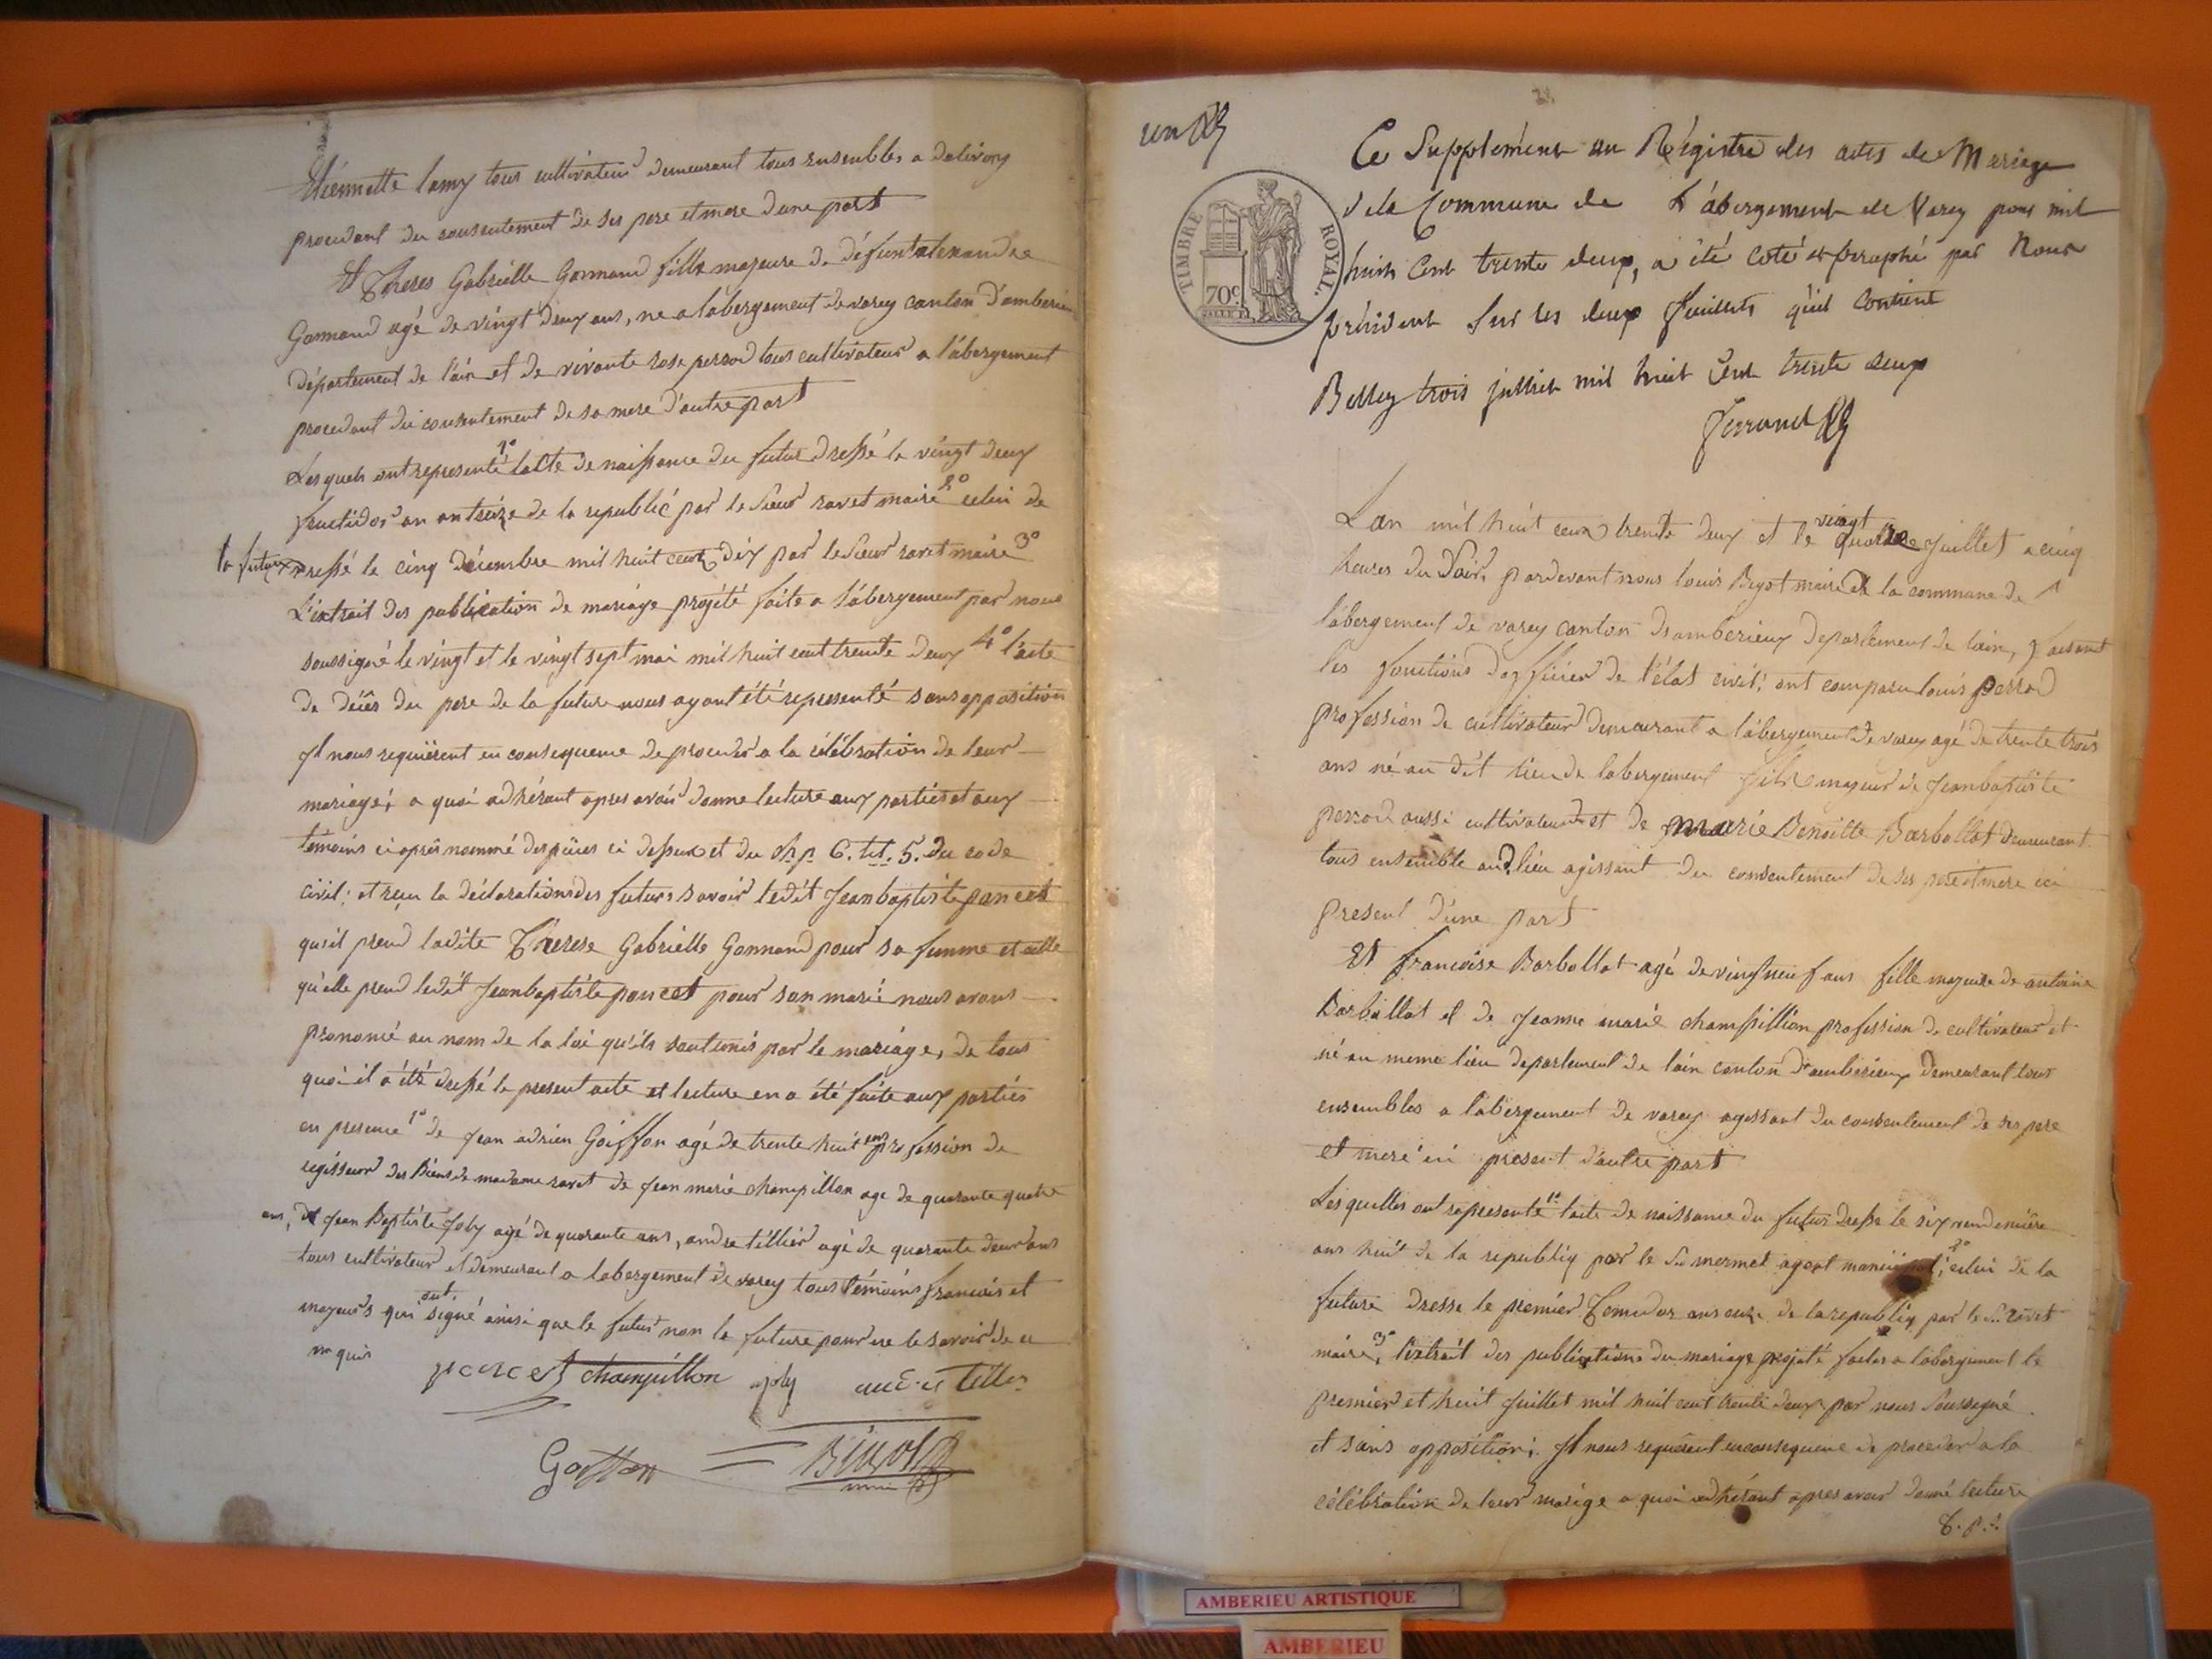 Etiennette lamy tous cultivateur demeurant tous ensembles a dalivoy
procedant du consentement de ses pere et mere dune part
Et Theres Gabrielle Gonnand fille majeure de défunt alexandre
Gonnand agé de vingt deux ans, ne a labergement de varey canton d'amberieu
département de l'ain et de vivante rose perrod tous cultivateur a l'abergement
procedant du consentement de sa mere d'autre part
Lesquels ont representé 1º lacte de naissance du futur dressé le vingt deux
fructidor an treize de la republic par le Sieur ravet maire 2º celui de
la future dressé le cinq décembre mil huit cent dix par le Sieur ravet maire 3º
L'extrait des publication de mariage projeté faite a l'abergement par nous
soussigné le vingt et le vingt sept mai mil huit cent trente deux 4º l'acte
de décès du pere de la future nous ayant été representé sans opposition
Il nous requièrent en consequence de proceder a la célébration de leur
mariage; a quoi adhérant apres avoir donne lecture aux parties et aux
témoins ci après nommé des pièces ci dessus et du chp. 6. tit. 5. du code
civil; et reçu la déclarations des futurs savoir ledit Jean baptiste poncet
qu'il prend ladite Therese Gabrielle Gonnand pour sa femme et celle
qu'elle prend ledit Jean baptiste poncet pour son marié nous avons
prononcé au nom de la loi qu'ils sont unis par le mariage, de tous
quoi il a été dressé le present acte et lecture en a été faite aux parties
en presence 1º de Jean adrien Goiffon agé de trente huit ans profession de
regisseur des Biens de madame ravet de Jean marie champillon age de quarante quatre
ans, de Jean Baptiste Joly agé de quarante ans, andre tillier agé de quarante deux ans
tous cultivateur et demeurant a labergement de varey tous témoins francais et
majeurs qui ont signé ainsi que le futur non la future pour ne le savoir de ce
requis
poncet champillon joly andré tillier
Goiffon Bigot
maire
un
Ce Supplément au Régistre des actes de Mariage
de la Commune de L'abergement de Varey pour mil
huit Cent trente deux, a été coté et paraphé par Nous
président sur les deux feuillets qu'il contient
Belley trois juillet mil huit Cent trente deux
Ferrand
TIMBRE ROYAL.
70c.
Lan mil huit cent trente deux et le vingt quatre Juillet a cinq
heures du Soir, pardevant nous louis Bigot maire de la commune de
labergement de varey canton d'amberieux departement de lain, faisant
les fonctions d'officier de l'état civil; ont comparu louis perrod
profession de cultivateur demeurant a l'abergement de varey agé de trente trois
ans né au dit lieu de labergement fils majeur de Jean baptiste
perrod aussi cultivateur et de marie Benoitte Barbollat demeurant
tous ensemble aud. lieu agissant du consentement de ses pere et mere ici
present d'une part
Et francoise Barbollat agé de vingt neuf ans fille majeure de antoine
Barbollat et de Jeanne marie champillion profession de cultivateur et
né au meme lieu departement de lain canton d'amberieux demeurant tous
ensembles a l'abergement de varey agissant du consentement de ses pere
et mere ici present d'autre part
Lesquelles ont representé 1º lacte de naissance du futur dresse le six vendemière
ans huit de la republiq par le Sr mermet agent municipal; 2º celui de la
future dresse le premier Termidor ans onze de la republiq par le Sr ravet
maire, 3º l'extrait des publications du mariage projeté faites a l'abergement le
premier et huit Juillet mil huit cent trente deux par nous Soussigné
et sans opposition; Il nous requièrent en consequence de proceder a la
célébration de leur marige a quoi adhérant apres avoir donné lecture
AMBERIEU ARTISTIQUE
AMBERIEU